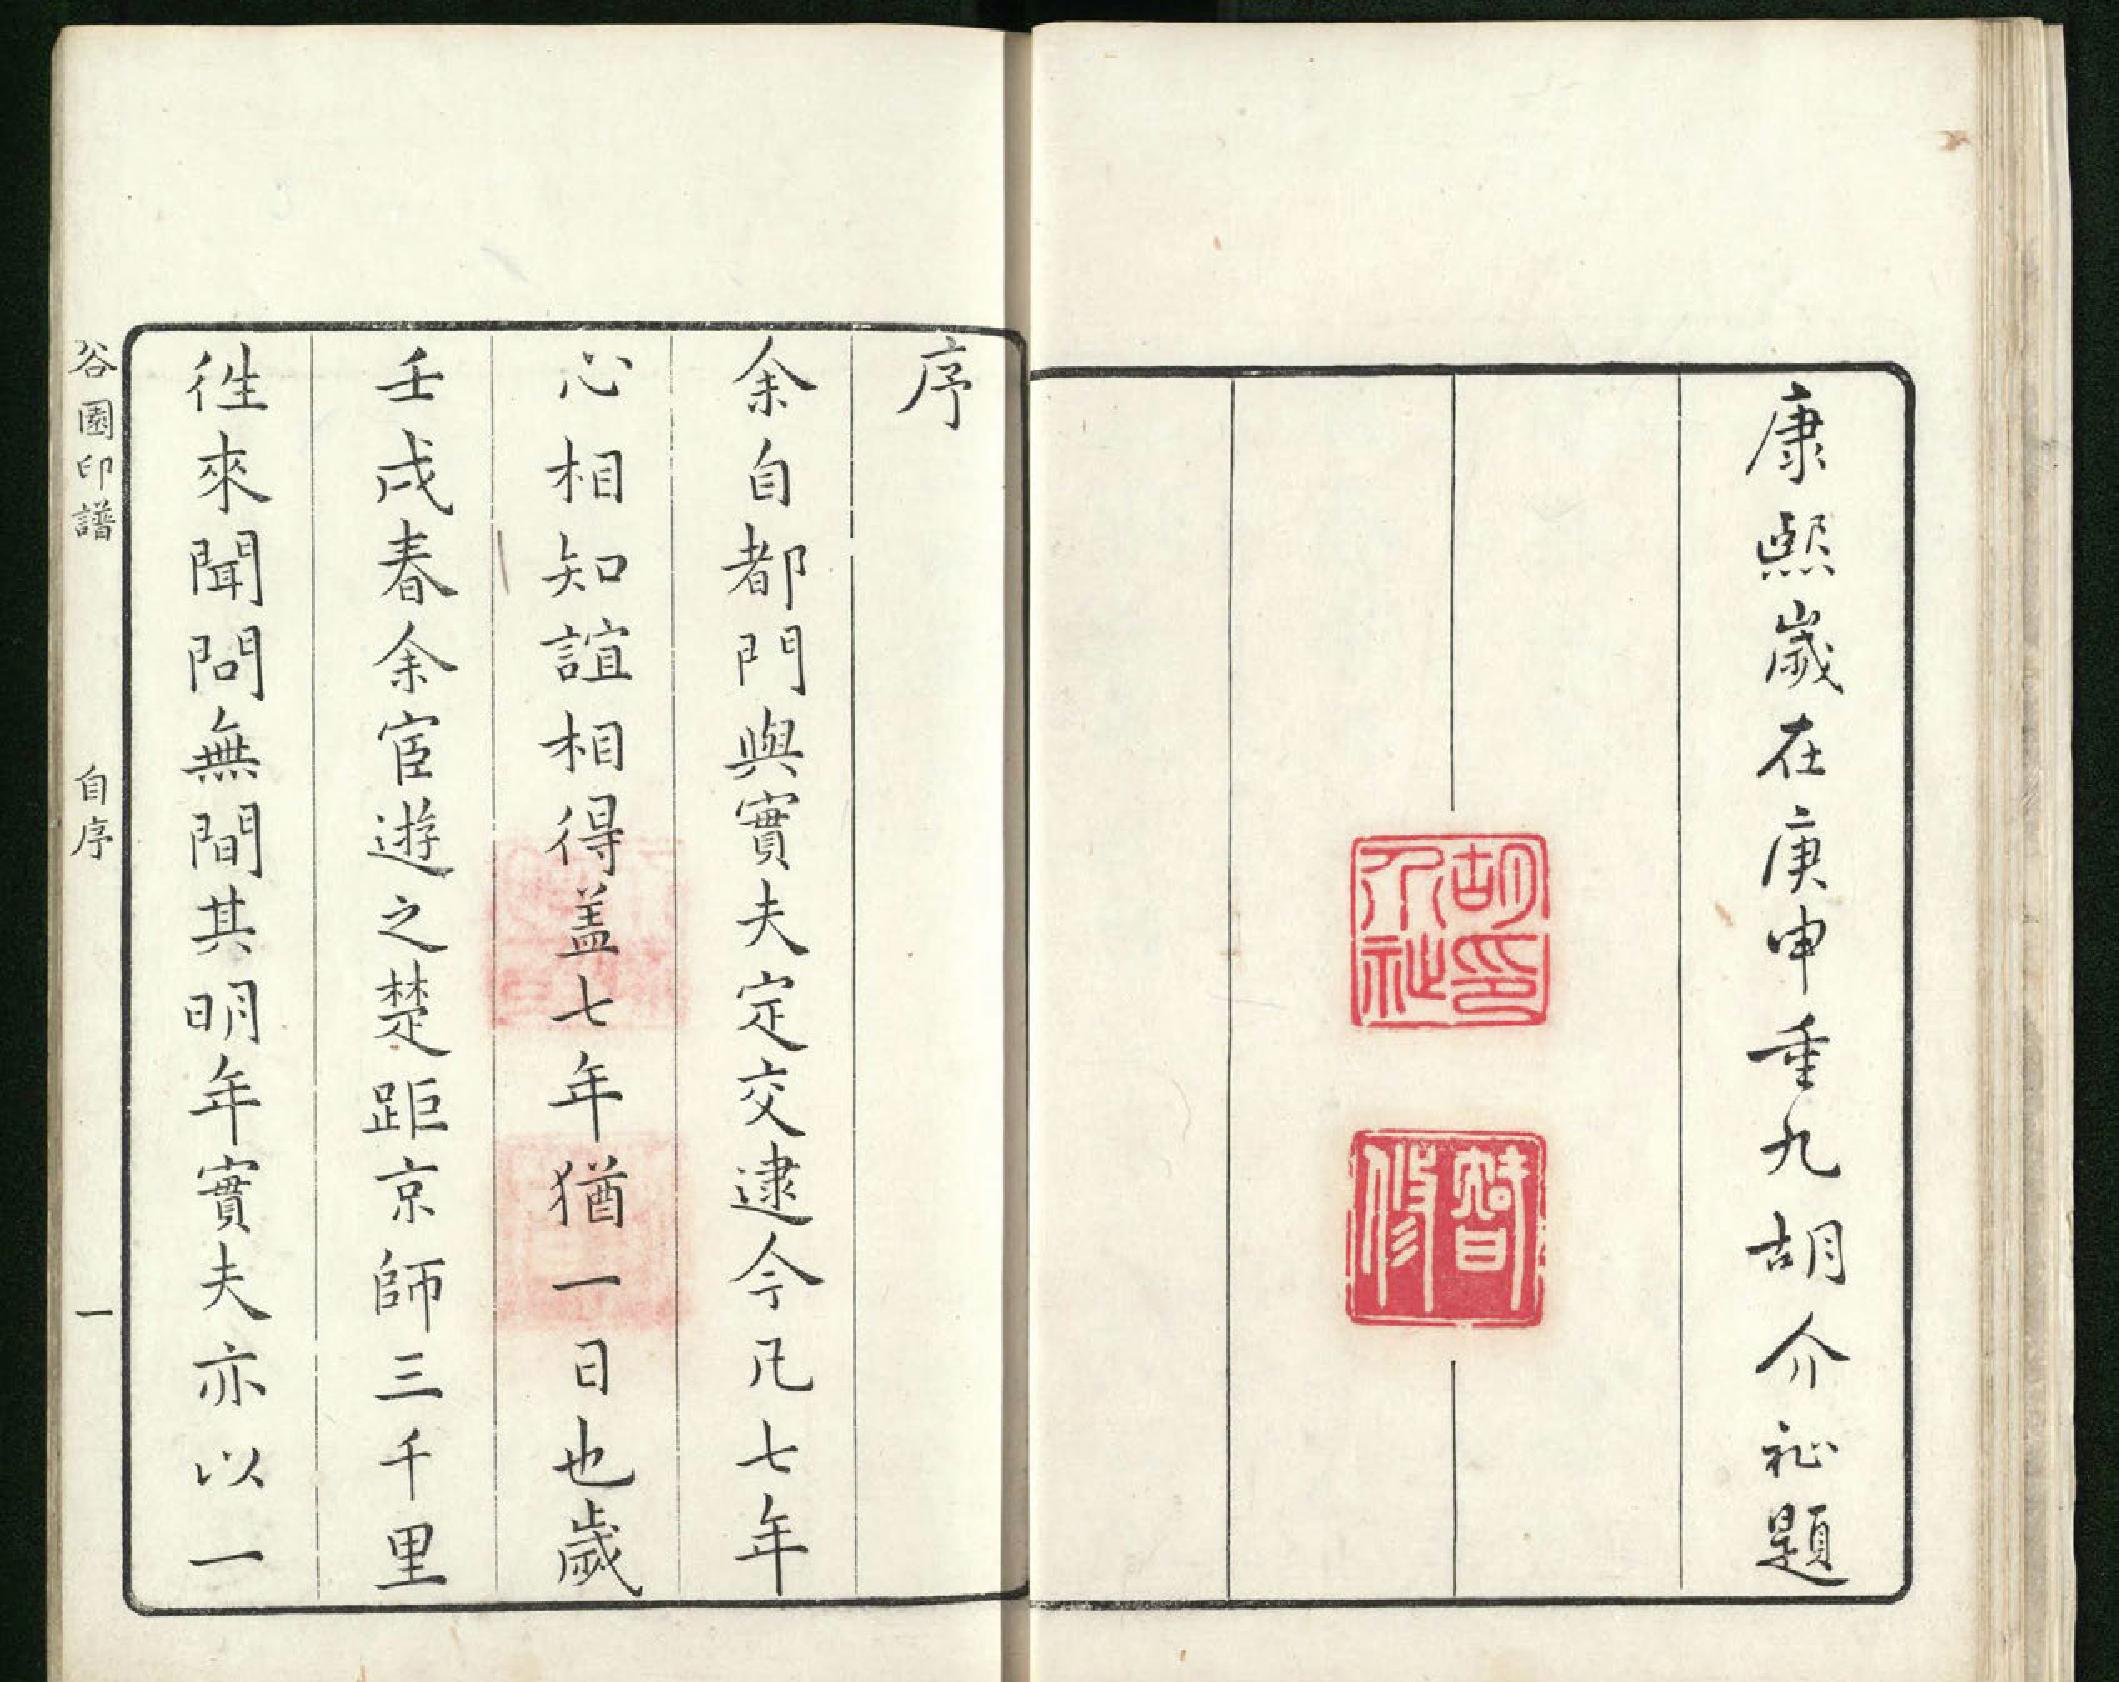 康熙歲在庚申重九胡介祉題
胡印介祉
智修
序
余自都門與實夫定交逮今凡七年
心相知誼相得盖七年猶一日也歲
壬戌春余宦遊之楚距京師三千里
徃來聞問無間其明年實夫亦以一
谷園印譜
自序
一